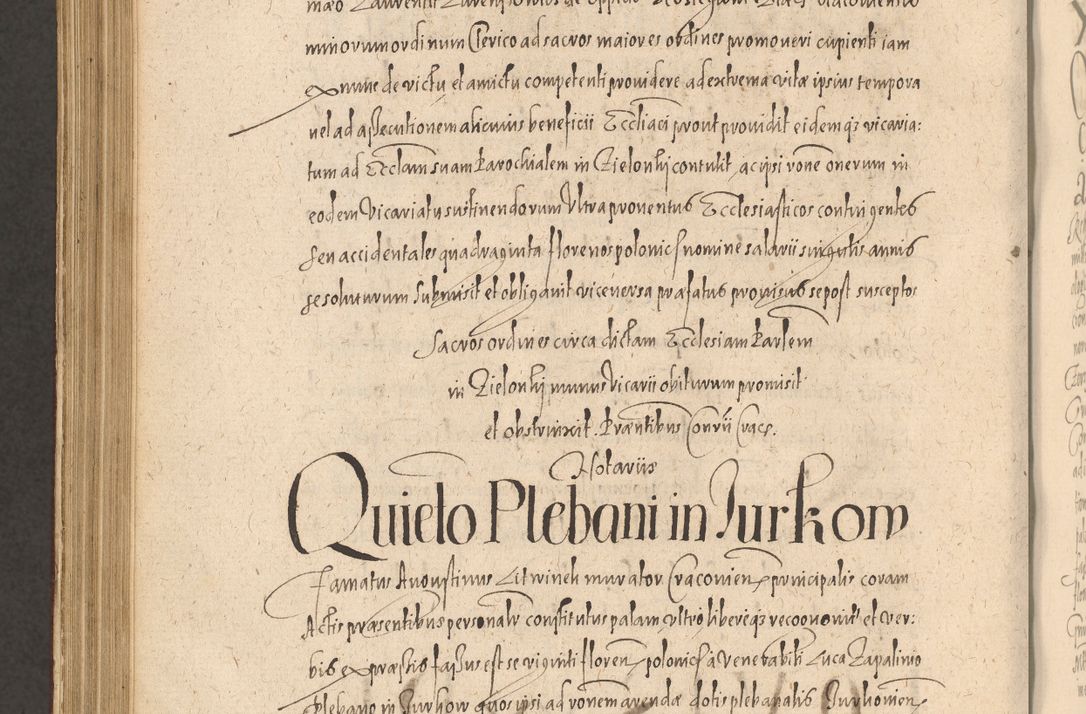 minorum ordinum Clerico ad sacros maiores ordines promoveri cupienti iam
ex nunc de victu et amictu competenti providere ad extrema vitæ ipsius tempora
vel ad assecutionem alicuius beneficii Ecclīaci prout providit eidemqȝ vicaria:
tum ad Ecclām suam Parochialem in Zielonki contulit ac ipsi rōne onerum in
eodem Vicariatu sustinendorum Ultra proventus Ecclesiasticos contingentes
seu accidentales quadraginta florenos polonic nomine salarii singulis annis
se soluturum submisit et obligavit vice versa præfatus provisus se post susceptos
Sacros ordines circa dictam Ecclesiam Parlem
in Zielonki munus Vicarii obiturum promisit
et obstrinxit. Præntibus Convii Crace.
Notariis
Quieto Plebani in Jurkow
Famatus Augustinus Litwinek murator Cracovien principalis coram
Actis præsentibus personalr constitutus palam ultro libereqȝ recognovit et ver:
bis expræssis fassus est se viginti floren polonic a Venerabili Luca Zapalinio
plebano in Jurkow quos ipsi ad rōnem arendæ dotis plebanalis Jurkowien